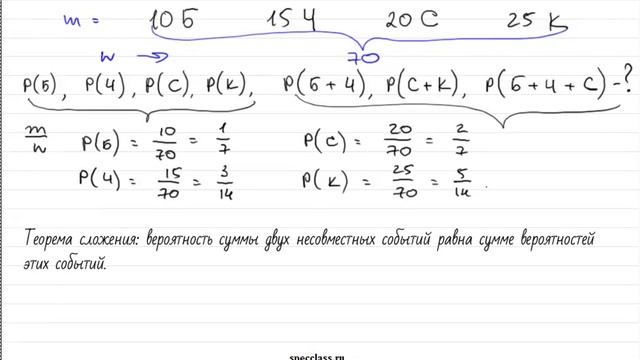 m = 10 Б 15 Ч 20 С 25 К
n → 70
P(Б), P(Ч), P(С), P(К), P(Б+Ч), P(С+К), P(Б+Ч+С)-?
m/n P(Б) = 10/70 = 1/7 P(С) = 20/70 = 2/7
P(Ч) = 15/70 = 3/14 P(К) = 25/70 = 5/14.
Теорема сложения: вероятность суммы двух несовместных событий равна сумме вероятностей
этих событий.
specclass.ru